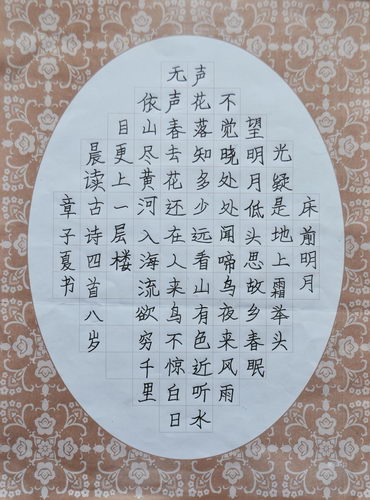 床前明月
光疑是地上霜举头
望明月低头思故乡春眠
不觉晓处处闻啼鸟夜来风雨
声花落知多少远看山有色近听水
无声春去花还在人来鸟不惊白日
依山尽黄河入海流欲穷千里
目更上一层楼
晨读古诗四首八岁
章子夏书